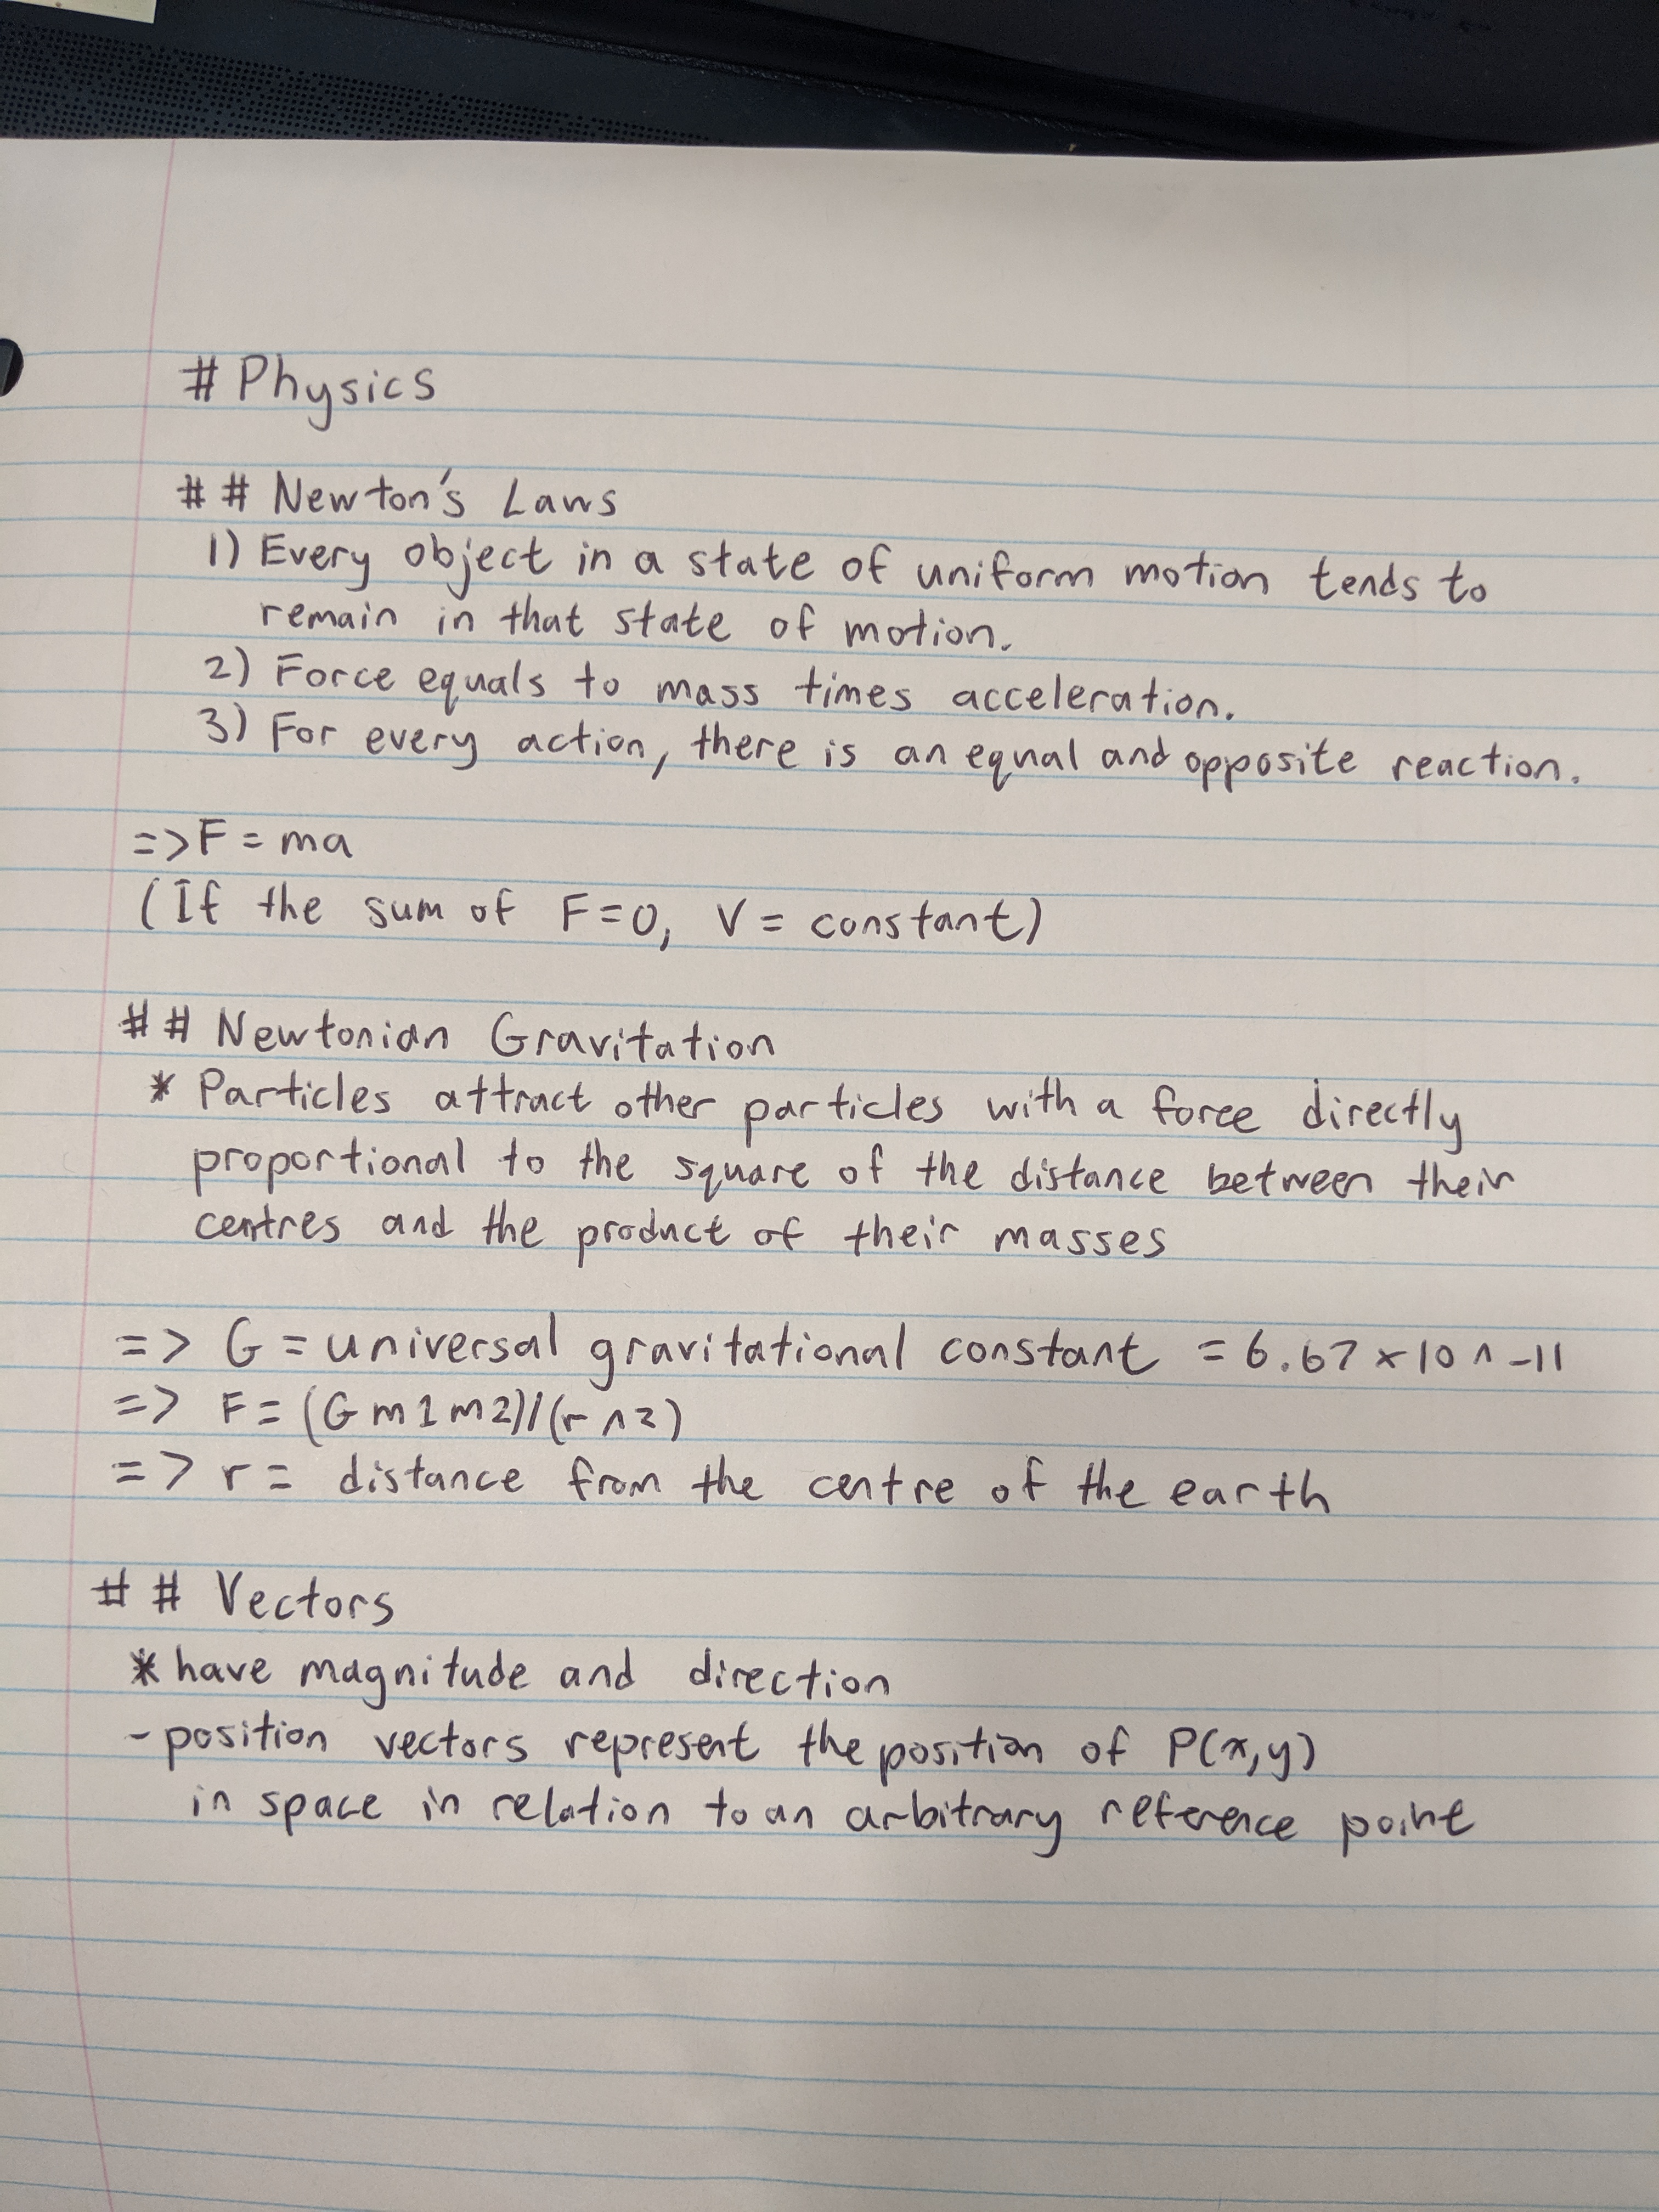 # Physics
## Newton's Laws
1) Every object in a state of uniform motion tends to
remain in that state of motion.
2) Force equals to mass times acceleration.
3) For every action, there is an equal and opposite reaction.
=> F = ma
(If the sum of F=0, V = constant)
## Newtonian Gravitation
* Particles attract other particles with a force directly
proportional to the square of the distance between their
centres and the product of their masses
=> G = universal gravitational constant = 6.67 x 10 ^ -11
=> F = (G m1 m2)/(r ^2)
=> r = distance from the centre of the earth
## Vectors
* have magnitude and direction
- position vectors represent the position of P(x,y)
in space in relation to an arbitrary reference point